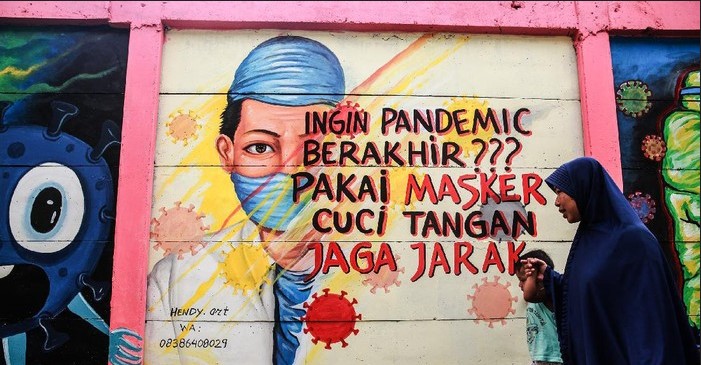 INGIN PANDEMIC
BERAKHIR???
PAKAI MASKER
CUCI TANGAN
JAGA JARAK
HENDY.art
WA:
08386408029